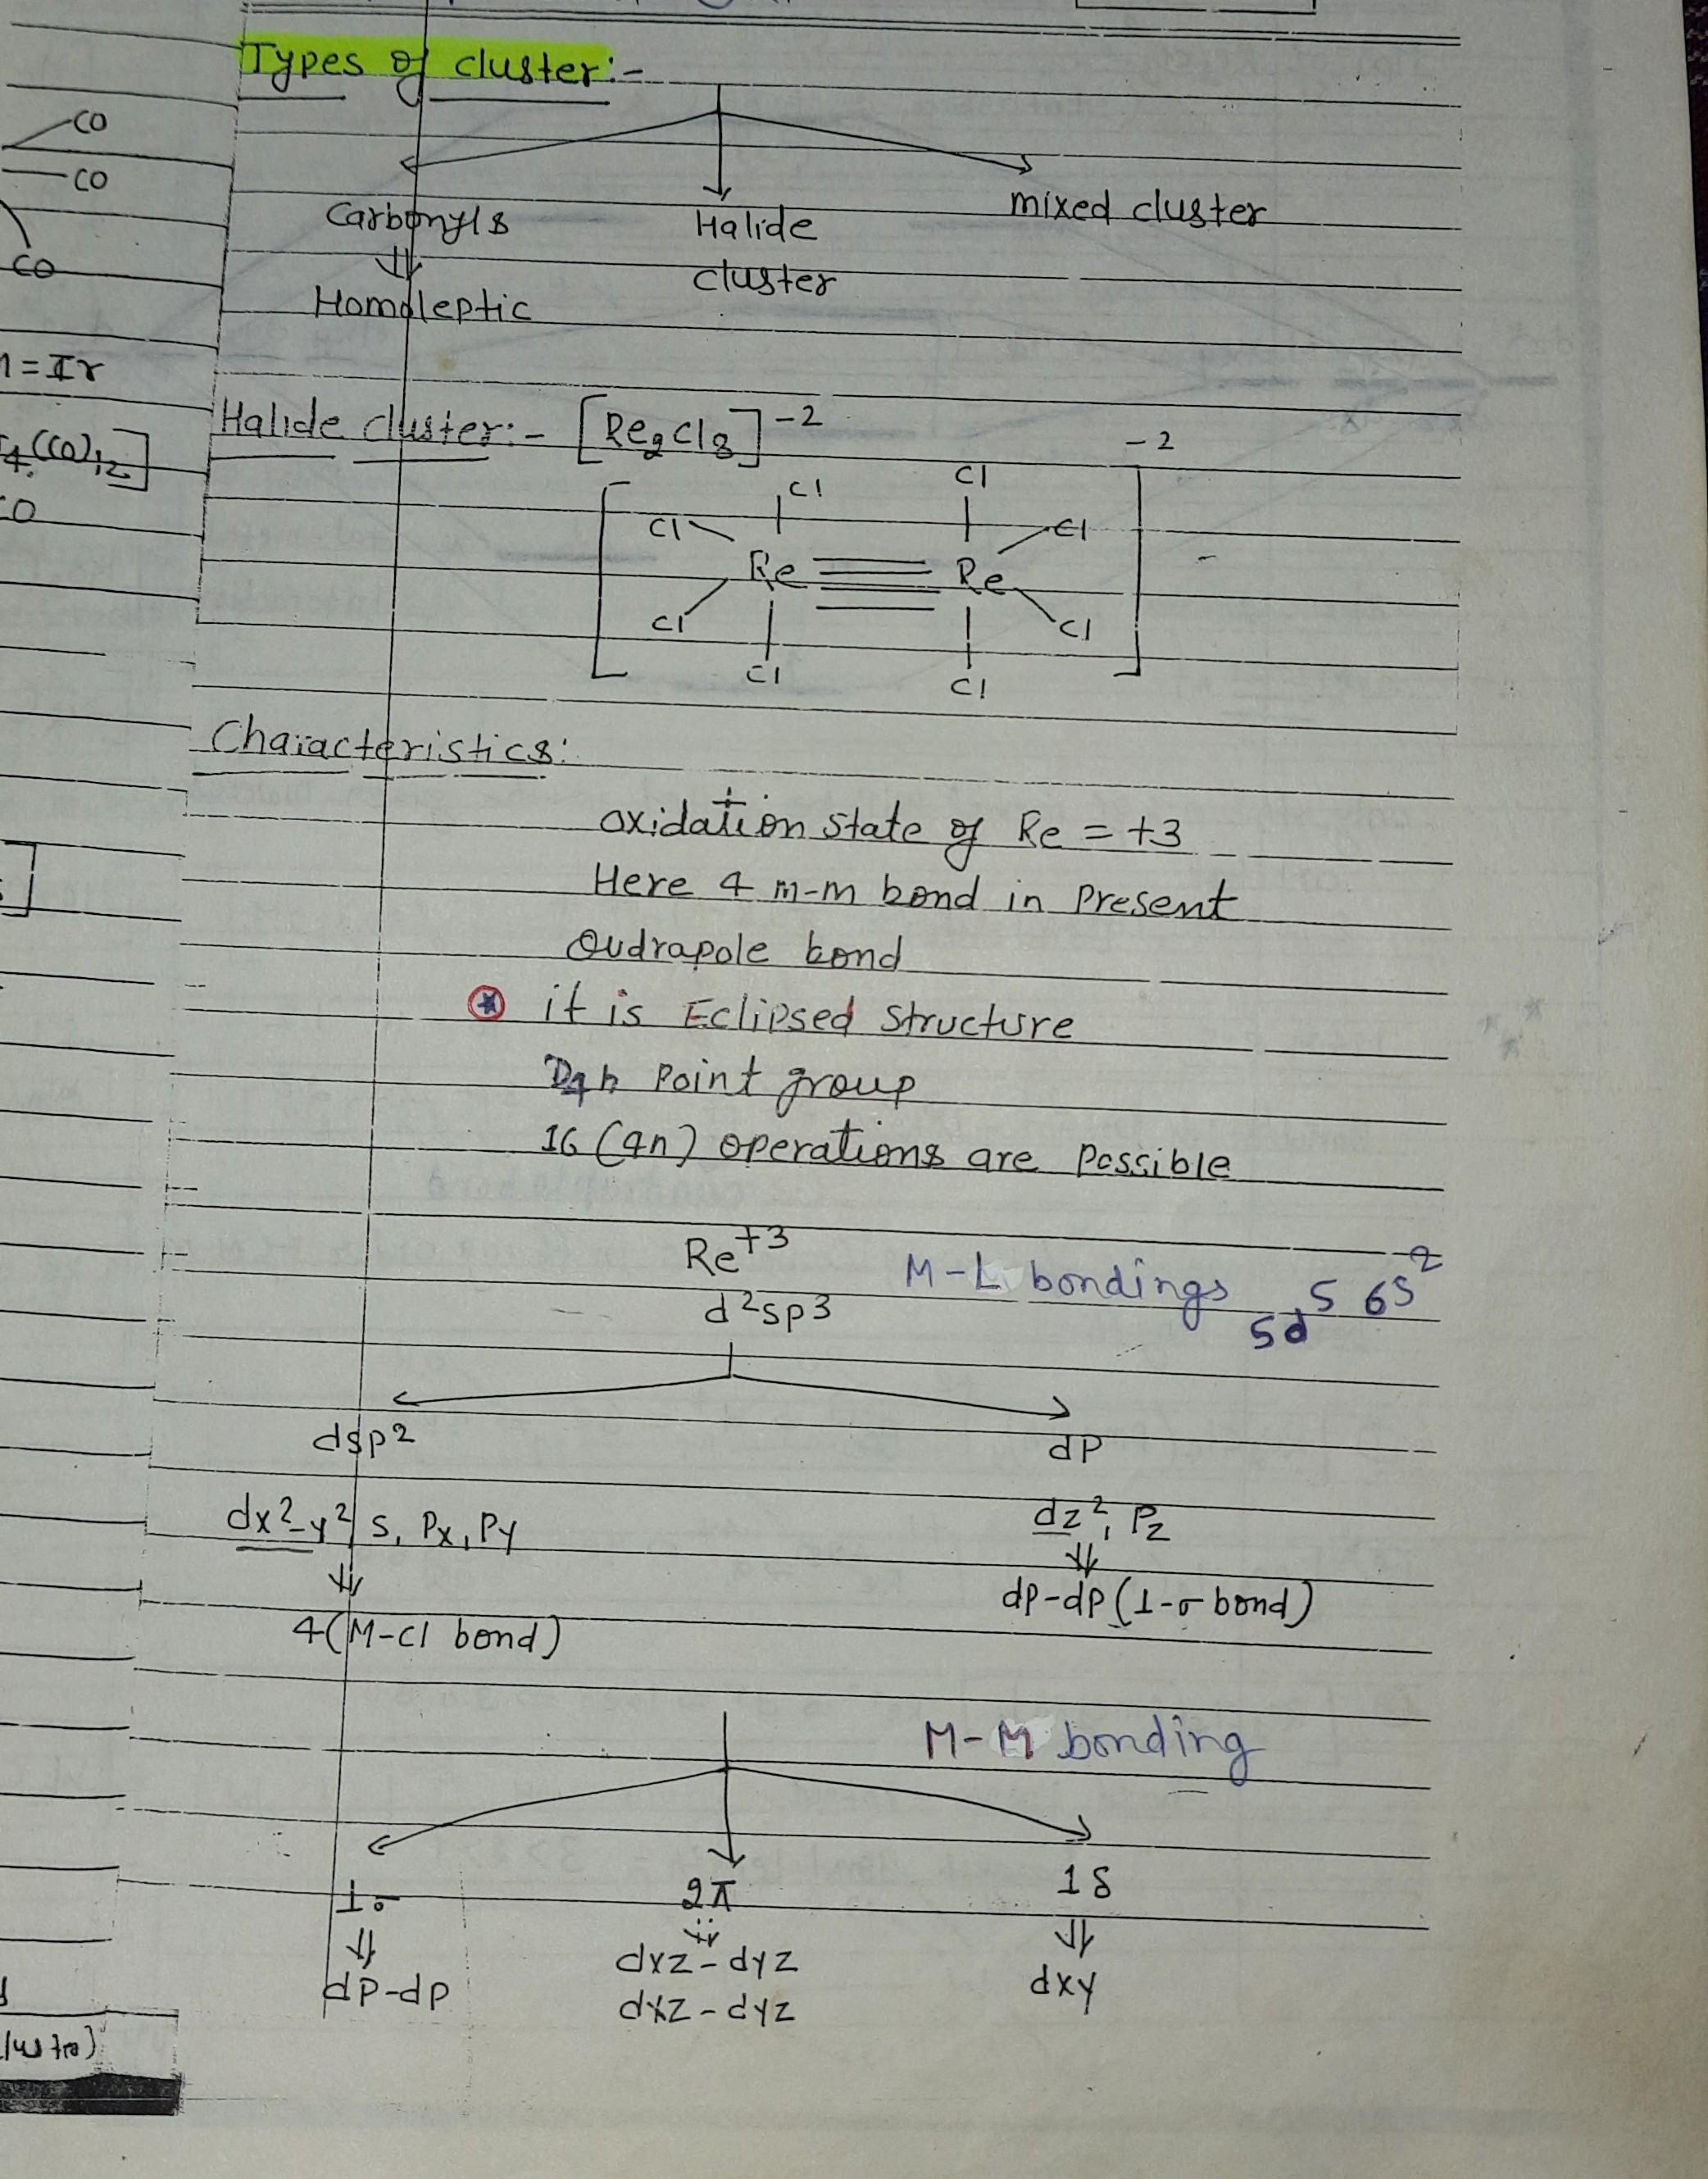 Types of cluster:-
Carbonyls
Halide
cluster
mixed cluster
⇓
Homoleptic
Halide cluster:- [Re2Cl8]^-2
-2
Cl Cl Cl Cl
Re Re
Cl Cl Cl Cl
Characteristics:
oxidation state of Re = +3
Here 4 m-m bond in Present
Qudrapole bond
it is Eclipsed Structure
D4h Point group
16 (4n) operations are Possible
Re^+3 M-L bondings 5d^5 6s^2
d^2sp3
dsp^2 dP
dx^2-y^2, s, Px, Py dz^2, Pz
⇓ ⇓
4(M-Cl bond) dP-dP (1-σ bond)
M-M bonding
1σ 2π 1δ
⇓ ⇓ ⇓
dP-dP dxz-dyz dxy
dxz-dyz
CO
CO
CO
= Ir
4(CO)12]
CO